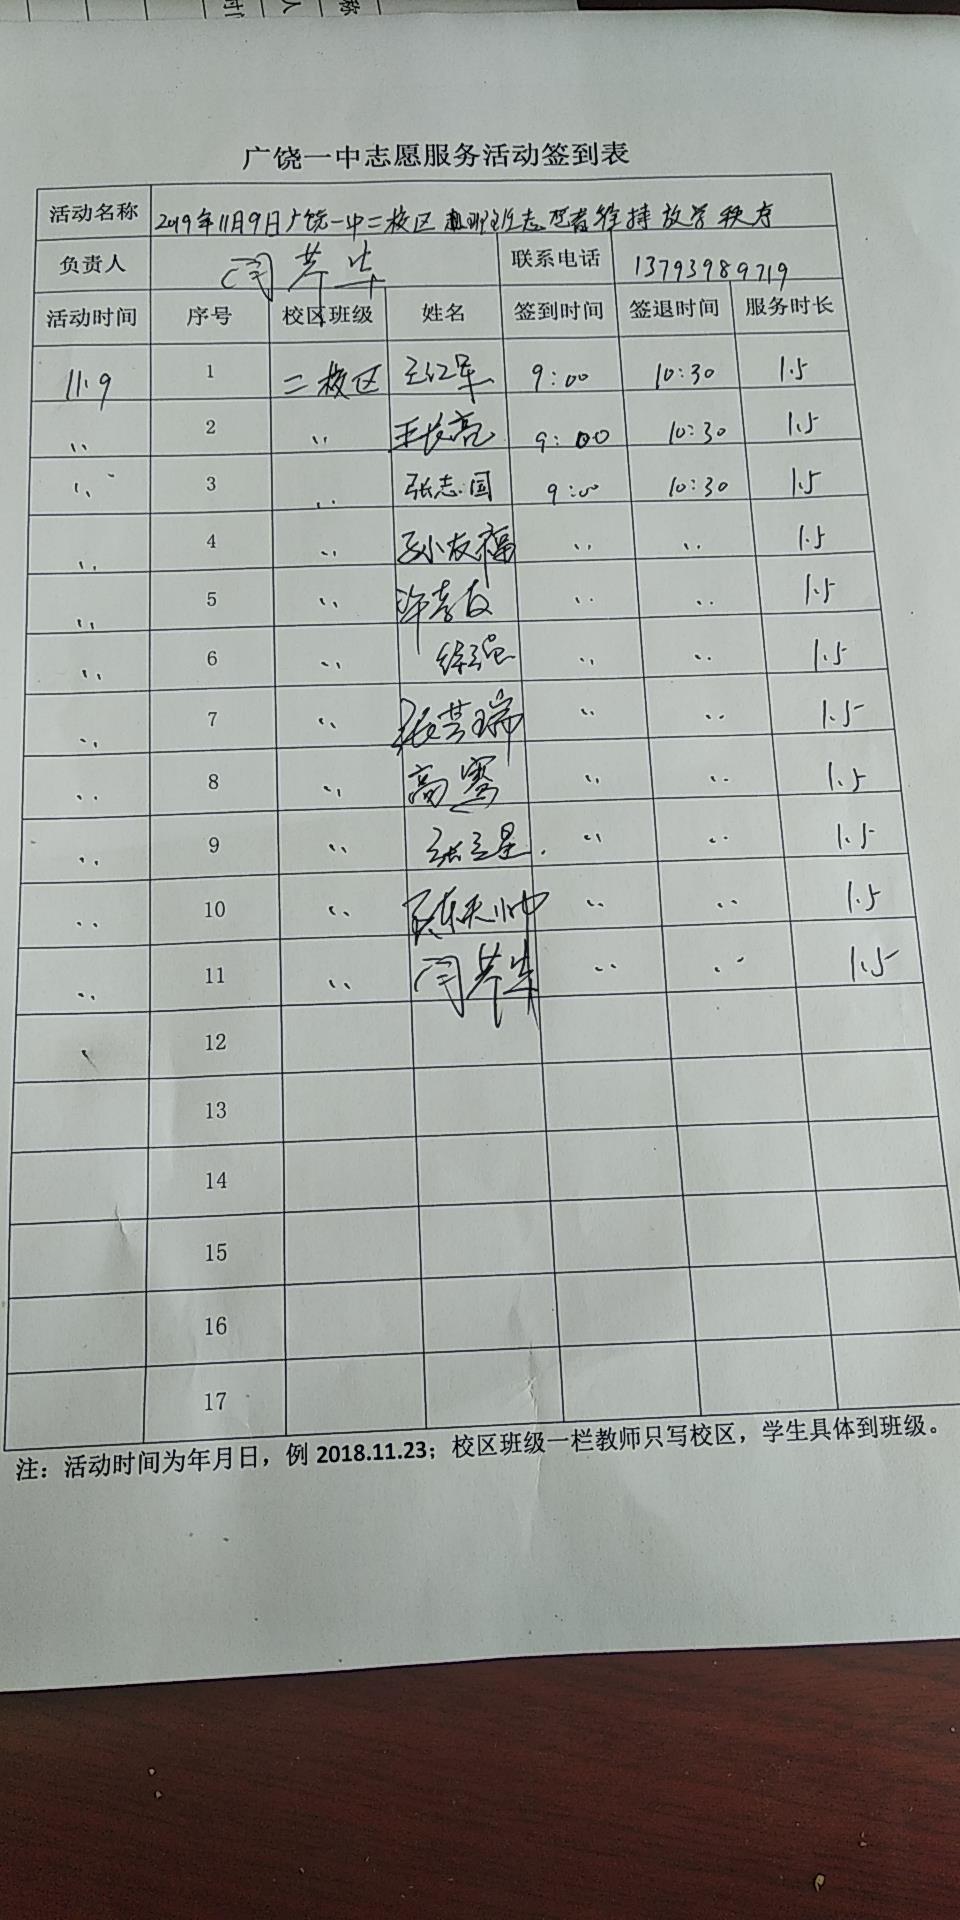 广饶一中志愿服务活动签到表
活动名称 2019年11月9日广饶一中二校区 志愿者维持放学秩序
负责人 闫芹生 联系电话 13793989719
活动时间 序号 校区班级 姓名 签到时间 签退时间 服务时长
11.9 1 二校区 王江军 9:00 10:30 1.5
〃 2 〃 王长亮 9:00 10:30 1.5
〃 3 〃 张志国 9:00 10:30 1.5
〃 4 〃 小友福 〃 〃 1.5
〃 5 〃 许孝友 〃 〃 1.5
〃 6 〃 徐强 〃 〃 1.5
〃 7 〃 张芸瑞 〃 〃 1.5
〃 8 〃 高骞 〃 〃 1.5
〃 9 〃 张立星 〃 〃 1.5
〃 10 〃 陈天帅 〃 〃 1.5
〃 11 〃 闫芹生 〃 〃 1.5
12
13
14
15
16
17
注：活动时间为年月日，例 2018.11.23；校区班级一栏教师只写校区，学生具体到班级。